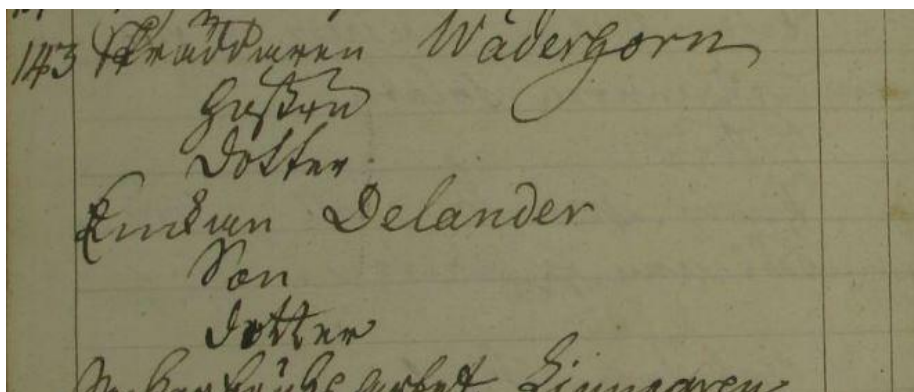 143 Skräddaren Wädergorn
Hustru
Dotter
Enckan Delander
Son
Dotter